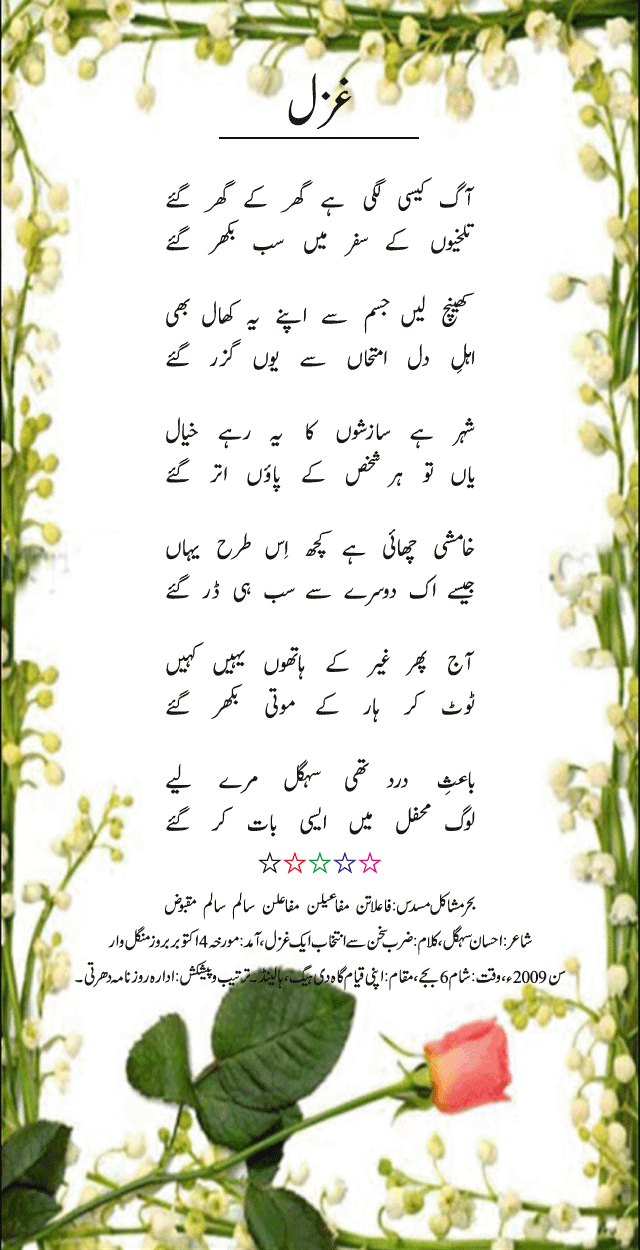 غزل
آگ کیسی لگی ہے گھر کے گھر گئے
تلخیوں کے سفر میں سب بکھر گئے
کھینچ لیں جسم سے اپنے یہ کھال بھی
اہلِ دل امتحاں سے یوں گزر گئے
شہر ہے سازشوں کا یہ رہے خیال
یاں تو ہر شخص کے پاؤں اتر گئے
خامشی چھائی ہے کچھ اِس طرح یہاں
جیسے اک دوسرے سے سب ہی ڈر گئے
آج پھر غیر کے ہاتھوں یہیں کہیں
ٹوٹ کر ہار کے موتی بکھر گئے
باعثِ درد تھی سہگل مرے لیے
لوگ محفل میں ایسی بات کر گئے
بحر مشاکل مسدس: فاعلاتن مفاعیلن مفاعلن سالم سالم مقبوض
شاعر: احسان سہگل، کلام: ضرب سخن سے انتخاب ایک غزل، آمد: مورخہ 4 اکتوبر بروز منگل وار
سن 2009ء، وقت: شام 6 بجے، مقام: اپنی قیام گاہ دی ہیگ، ہالینڈ۔ ترتیب و پیشکش: ادارہ روزنامہ دھرتی۔